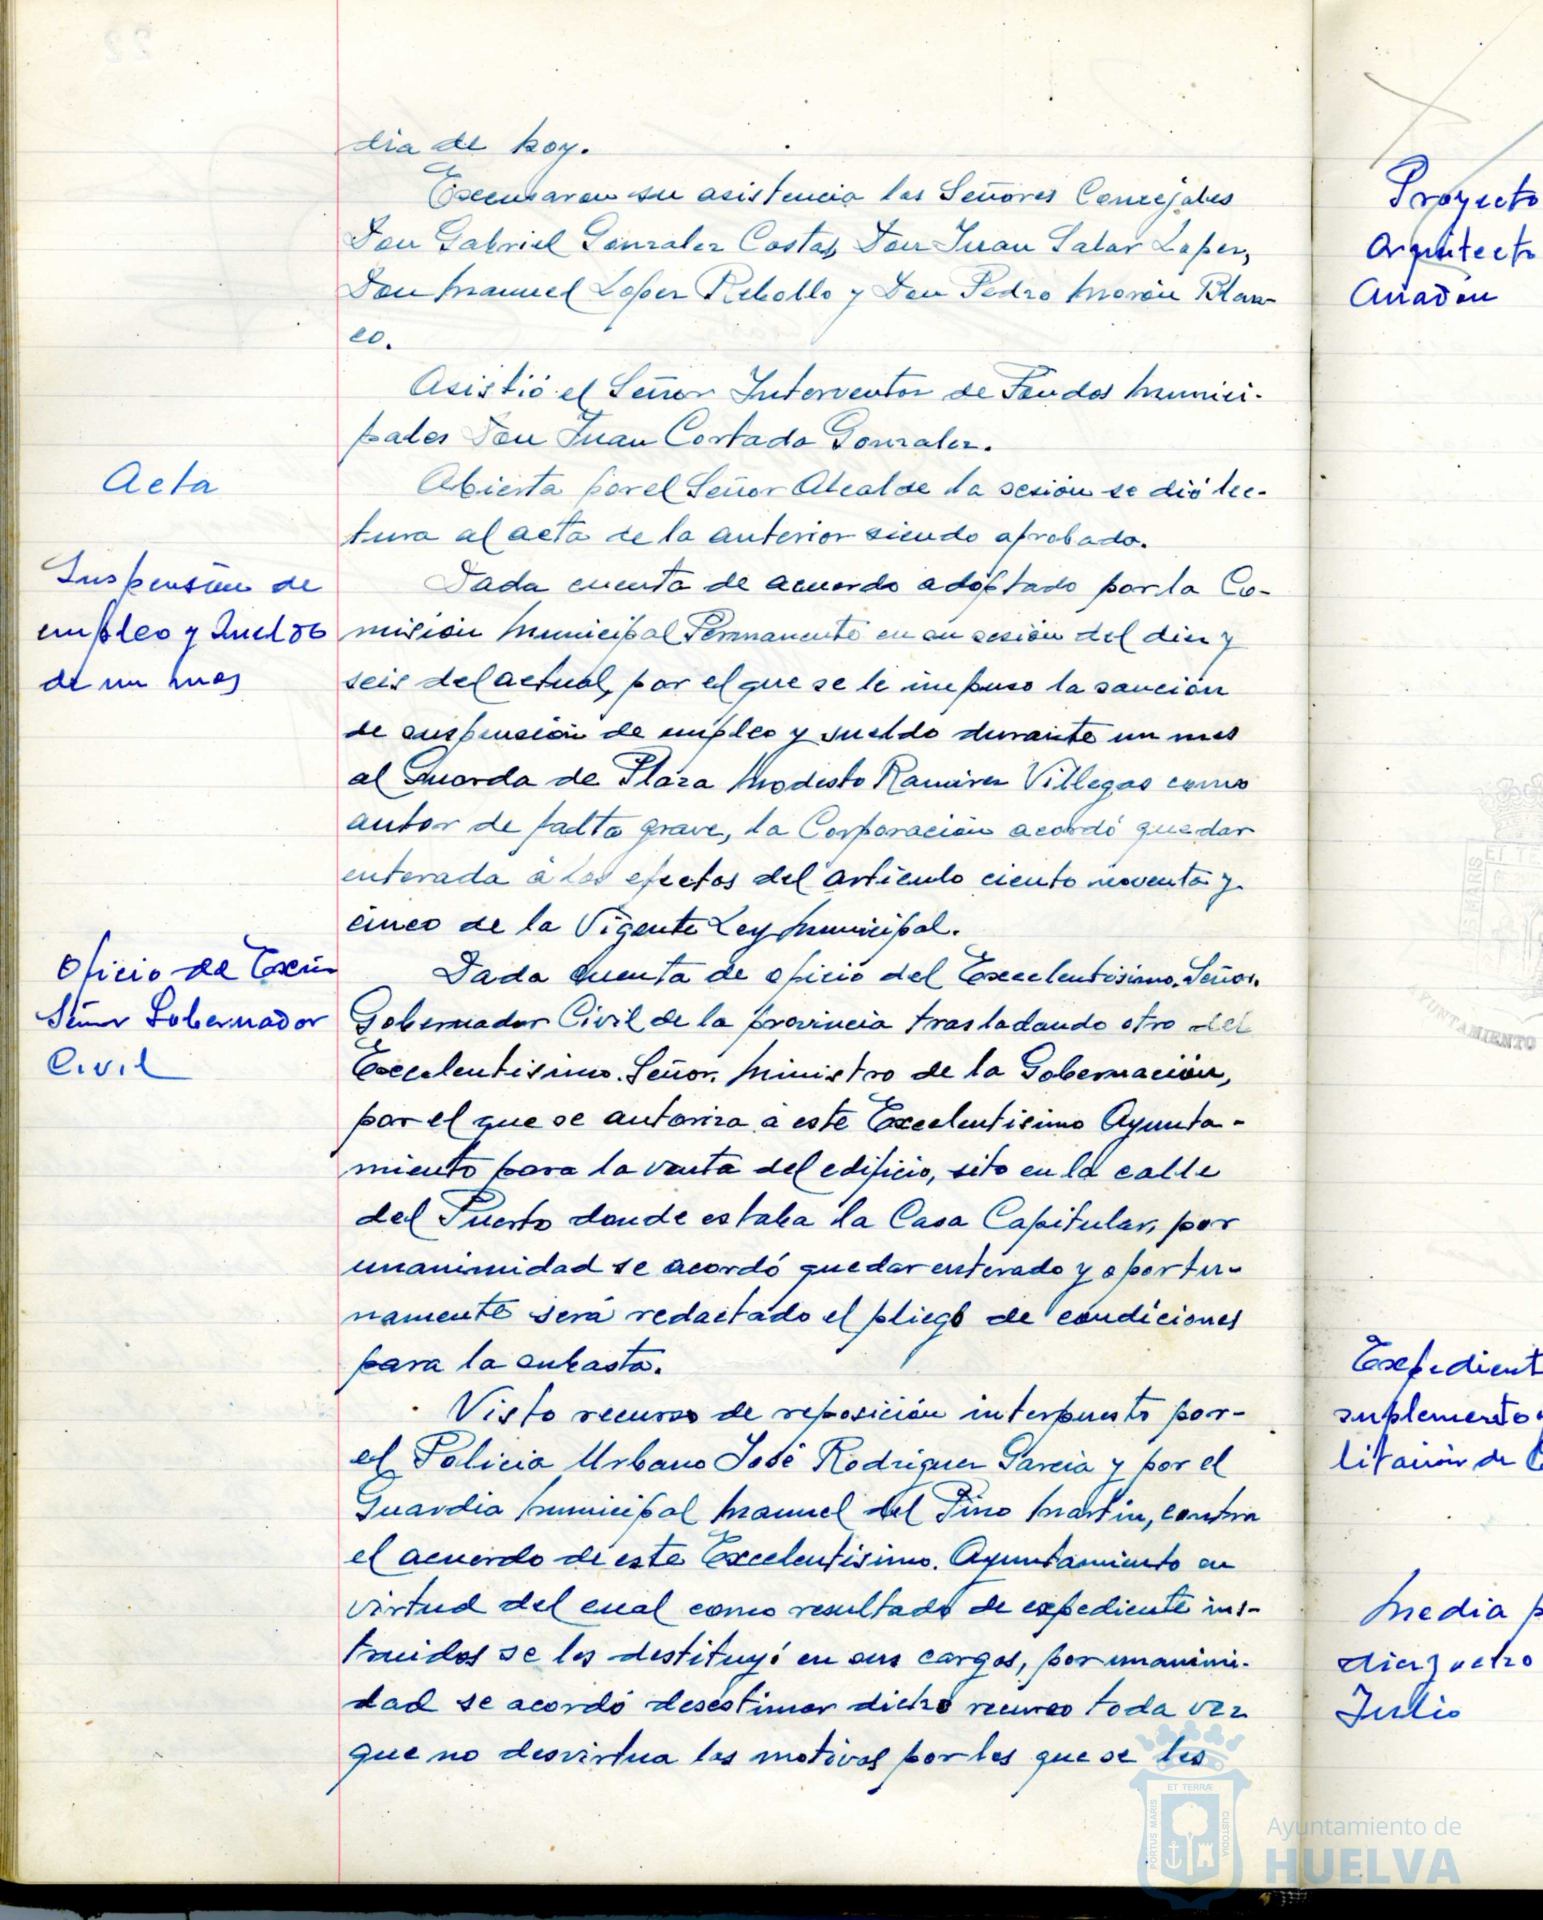 dia de hoy.
Excusaron su asistencia los Señores Concejales
Don Gabriel Gonzalez Costas, Don Juan Salar Lopez,
Don Manuel Lopez Rebollo y Don Pedro Morón Blan-
co.
Asistió el Señor Interventor de Fondos Munici-
pales Don Juan Cortada Gonzalez.
Acta
Abierta por el Señor Alcalde la sesión se dió lec-
tura al acta de la anterior siendo aprobada.
Suspensión de
empleo y sueldo
de un mes
Dada cuenta de acuerdo adoptado por la Co-
misión Municipal Permanente en su sesión del diez y
seis del actual, por el que se le impuso la sanción
de suspensión de empleo y sueldo durante un mes
al Guarda de Plaza Modesto Ramirez Villegas como
autor de falta grave, la Corporación acordó quedar
enterada á los efectos del articulo ciento noventa y
cinco de la Vigente Ley Municipal.
Oficio del Excmº
Señor Gobernador
Civil
Dada cuenta de oficio del Excelentisimo. Señor.
Gobernador Civil de la provincia trasladando otro del
Excelentisimo. Señor. Ministro de la Gobernación,
por el que se autoriza á este Excelentisimo Ayunta-
miento para la venta del edificio, sito en la calle
del Puerto donde estaba la Casa Capitular, por
unanimidad se acordó quedar enterado y oportu-
namente será redactado el pliego de condiciones
para la subasta.
Visto recurso de reposición interpuesto por-
el Policia Urbano José Rodriguez Garcia y por el
Guardia Municipal Manuel del Pino Martin, contra
el acuerdo de este Excelentisimo. Ayuntamiento en
virtud del cual como resultado de expediente ins-
truidos se les destituyó en sus cargos, por unanimi-
dad se acordó desestimar dicho recurso toda vez
que no desvirtua los motivos por los que se les
Proyecto
Arquitecto
Anadón
Expedient
suplemento
litación de
Media p
diez y ocho
Julio
AYUNTAMIENTO
ET TERRÆ
PORTUS MARIS
CUSTODIA
Ayuntamiento de
HUELVA